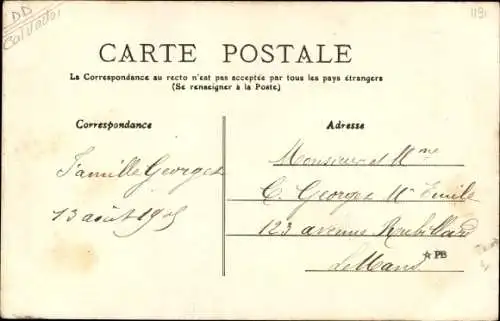 DD
Calvados
1191
CARTE POSTALE
La Correspondance au recto n'est pas acceptée par tous les pays étrangers
(Se renseigner à la Poste)
Correspondance
Adresse
Famille Georges
13 août 19
Monsieur et Mme
C. Georges Emile
123 avenue Roubillard
Le Mans
☆ PB